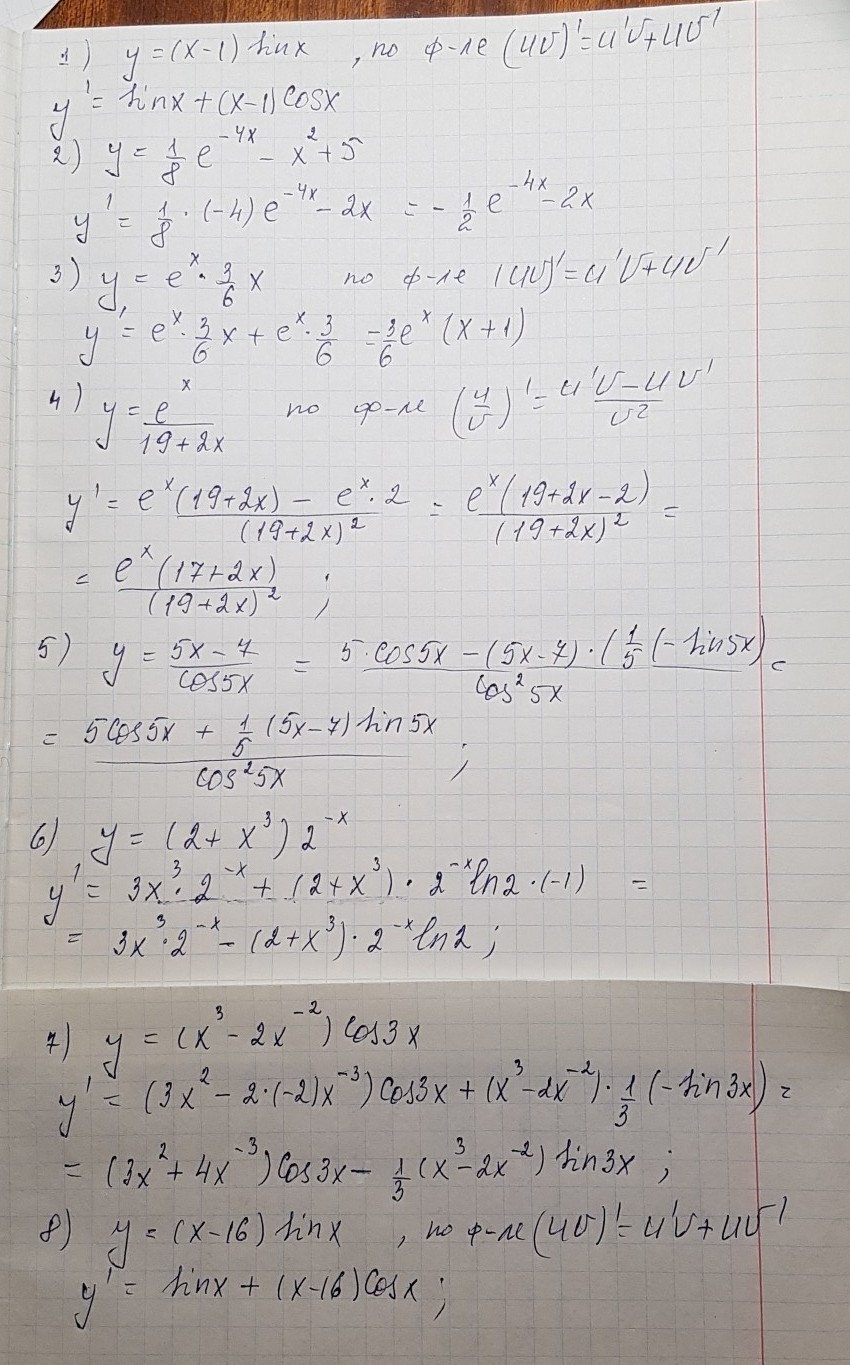 1) y = (x-1) sinx , по ф-ле (uv)'=u'v+uv'
y' = sinx + (x-1) cosx
2) y = 1/8 e^(-4x) - x^2 + 5
y' = 1/8 · (-4) e^(-4x) - 2x = - 1/2 e^(-4x) - 2x
3) y = e^x · 3/6 x по ф-ле (uv)'=u'v+uv'
y' = e^x · 3/6 x + e^x · 3/6 = 3/6 e^x (x+1)
4) y = e^x/(19+2x) по ф-ле (u/v)' = (u'v-uv')/v^2
y' = (e^x(19+2x) - e^x · 2)/(19+2x)^2 = e^x(19+2x-2)/(19+2x)^2 =
= e^x(17+2x)/(19+2x)^2 ;
5) y = (5x-7)/cos5x = (5·cos5x - (5x-7)·(1/5 (-sin5x))/cos^2 5x =
= (5cos5x + 1/5 (5x-7) sin5x)/cos^2 5x ;
6) y = (2+x^3) 2^(-x)
y' = 3x^3·2^(-x) + (2+x^3)·2^(-x) ln2·(-1) =
= 3x^3·2^(-x) - (2+x^3)·2^(-x) ln2 ;
7) y = (x^3 - 2x^(-2)) cos3x
y' = (3x^2 - 2·(-2)x^(-3)) cos3x + (x^3-2x^(-2))·1/3 (-sin3x) =
= (3x^2+4x^(-3)) cos3x - 1/3 (x^3-2x^(-2)) sin3x ;
8) y = (x-16) sinx , по ф-ле (uv)'=u'v+uv'
y' = sinx + (x-16) cosx ;